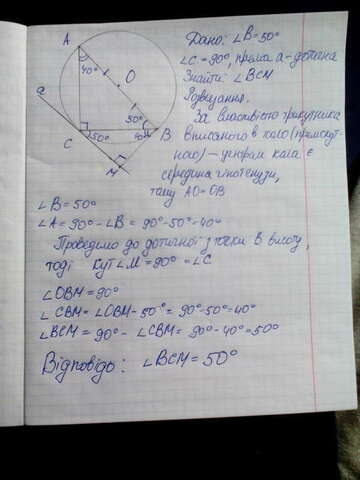 Дано: ∠B=50°
∠C=90°, пряма a-дотична
Знайти: ∠BCM
Розвязання.
За властивістю трикутника
вписаного в коло (прямокут
ного) – центрам кола є
середина гіпотенузи,
тому AO=OB
A
40°
O
a
50°
C
50°
40°
B
M
∠B=50°
∠A=90°-∠B=90°-50°=40°
Проведимо до дотичної з точки B висоту,
тоді кут ∠M=90°=∠C
∠OBM=90°
∠CBM=∠OBM-50°=90°-50°=40°
∠BCM=90°-∠CBM=90°-40°=50°
Відповідь: ∠BCM=50°